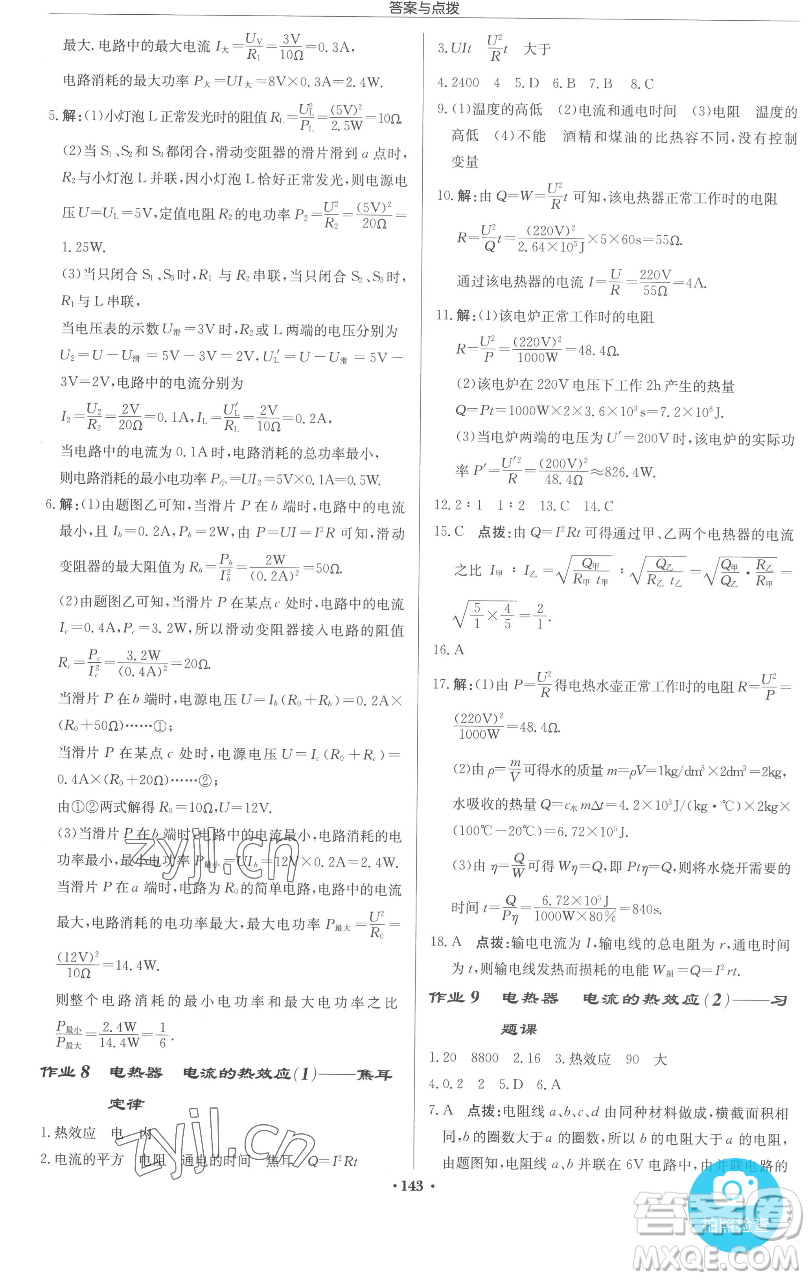 答案与点拨
最大.电路中的最大电流 I大=UV/R1=3V/10Ω=0.3A,
电路消耗的最大功率 P大=UI大=8V×0.3A=2.4W.
5.解:(1)小灯泡 L 正常发光时的阻值 RL=UL²/PL=(5V)²/2.5W=10Ω.
(2)当 S1、S2 和 S3都闭合,滑动变阻器的滑片滑到 a 点时,
R2与小灯泡 L 并联,因小灯泡 L 恰好正常发光,则电源电
压 U=UL=5V,定值电阻 R2的电功率 P2=U²/R2=(5V)²/20Ω=
1.25W.
(3)当只闭合 S1、S3时,R1 与 R2 串联;当只闭合 S2时,
R1与 L 串联,
当电压表的示数 U滑=3V 时,R2或 L 两端的电压分别为
U2=U-U滑=5V-3V=2V,UL′=U-U滑=5V-
3V=2V,电路中的电流分别为
I2=U2/R2=2V/20Ω=0.1A,IL=UL′/RL=2V/10Ω=0.2A,
当电路中的电流为 0.1A 时,电路消耗的总功率最小,
则电路消耗的最小电功率 P小=UI2=5V×0.1A=0.5W.
6.解:(1)由题图乙可知,当滑片 P 在 b 端时,电路中的电流
最小,且 Ib=0.2A,Pb=2W,由 P=UI=I²R 可知,滑动
变阻器的最大阻值为 Rb=Pb/Ib²=2W/(0.2A)²=50Ω.
(2)由题图乙可知,当滑片 P 在某点 c 处时,电路中的电流
Ic=0.4A,Pc=3.2W,所以滑动变阻器接入电路的阻值
Rc=Pc/Ic²=3.2W/(0.4A)²=20Ω.
当滑片 P 在 b 端时,电源电压 U=Ib(R0+Rb)=0.2A×
(R0+50Ω)……①;
当滑片 P 在某点 c 处时,电源电压 U=Ic(R0+Rc)=
0.4A×(R0+20Ω)……②
由①②两式解得 R0=10Ω,U=12V.
(3)当滑片 P 在 b 端时,电路中的电流最小,电路消耗的电
功率最小,电功率 P最小=UI最小=12V×0.2A=2.4W.
当滑片 P 在 a 端时,电路为 R0的简单电路,电路中的电流
最大,电路消耗的电功率最大,最大电功率 P最大=U²/R0=
(12V)²/10Ω=14.4W.
则整个电路消耗的最小电功率和最大电功率之比
P最小/P最大=2.4W/14.4W=1/6.
作业 8 电热器 电流的热效应(1)——焦耳
定律
1.热效应 电 内
2.电流的平方 电阻 通电的时间 焦耳 Q=I²Rt
3.UIt U²/R t 大于
4.2400 4 5.D 6.B 7.B 8.C
9.(1)温度的高低 (2)电流和通电时间 (3)电阻 温度的
高低 (4)不能 酒精和煤油的比热容不同,没有控制
变量
10.解:由 Q=W=U²/R t 可知,该电热器正常工作时的电阻
R=U²/Q t=(220V)²/2.64×10⁵J×5×60s=55Ω.
通过该电热器的电流 I=U/R=220V/55Ω=4A.
11.解:(1)该电炉正常工作时的电阻
R=U²/P=(220V)²/1000W=48.4Ω.
(2)该电炉在 220V 电压下工作 2h 产生的热量
Q=Pt=1000W×2×3.6×10³s=7.2×10⁶J.
(3)当电炉两端的电压为 U′=200V 时,该电炉的实际功
率 P′=U′²/R=(200V)²/48.4Ω≈826.4W.
12.2∶1 1∶2 13.C 14.C
15.C 点拨:由 Q=I²Rt 可得通过甲、乙两个电热器的电流
之比 I甲∶I乙=√(Q甲/R甲t甲)∶√(Q乙/R乙t乙)=√(Q甲/Q乙·R乙/R甲)=
√(5/1×4/5)=2/1.
16.A
17.解:(1)由 P=U²/R得电热水壶正常工作时的电阻 R=U²/P=
(220V)²/1000W=48.4Ω.
(2)由ρ=m/V可得水的质量 m=ρV=1kg/dm³×2dm³=2kg,
水吸收的热量 Q=c水mΔt=4.2×10³J/(kg·℃)×2kg×
(100℃-20℃)=6.72×10⁵J.
(3)由 η=Q/W得 Wη=Q,即 Ptη=Q,则将水烧开需要的
时间 t=Q/Pη=6.72×10⁵J/1000W×80%=840s.
18.A 点拨:输电电流为 I,输电线的总电阻为 r,通电时间
为 t,则输电线发热而损耗的电能 W损=I²rt.
作业 9 电热器 电流的热效应(2)——习
题课
1.20 8800 2.16 3.热效应 90 大
4.0.2 2 5.D 6.A
7.A 点拨:电阻线 a、b、c、d 由同种材料做成,横截面积相
同,b 的圈数大于 a 的圈数,所以 b 的电阻大于 a 的电阻,
由题图知,a、b 并联在 6V 电路中,由并联电路的
·143·
zyjl.cn
zyjl.cn
答案卷
拍照检查
MXQE.COM